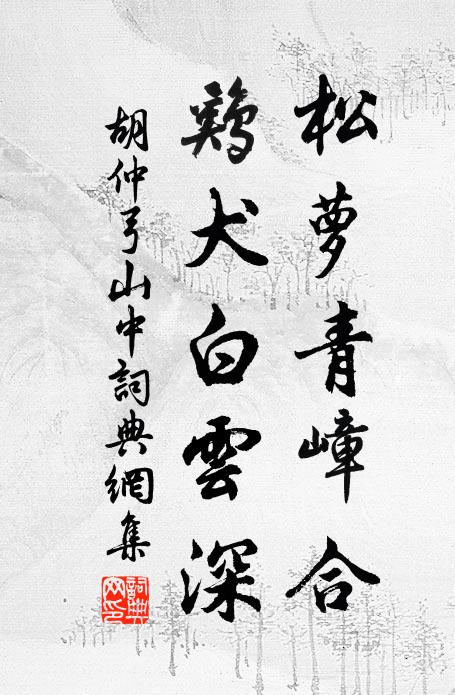 松萝青嶂合
鷄犬白雲深
胡仲弓山中詞典網集